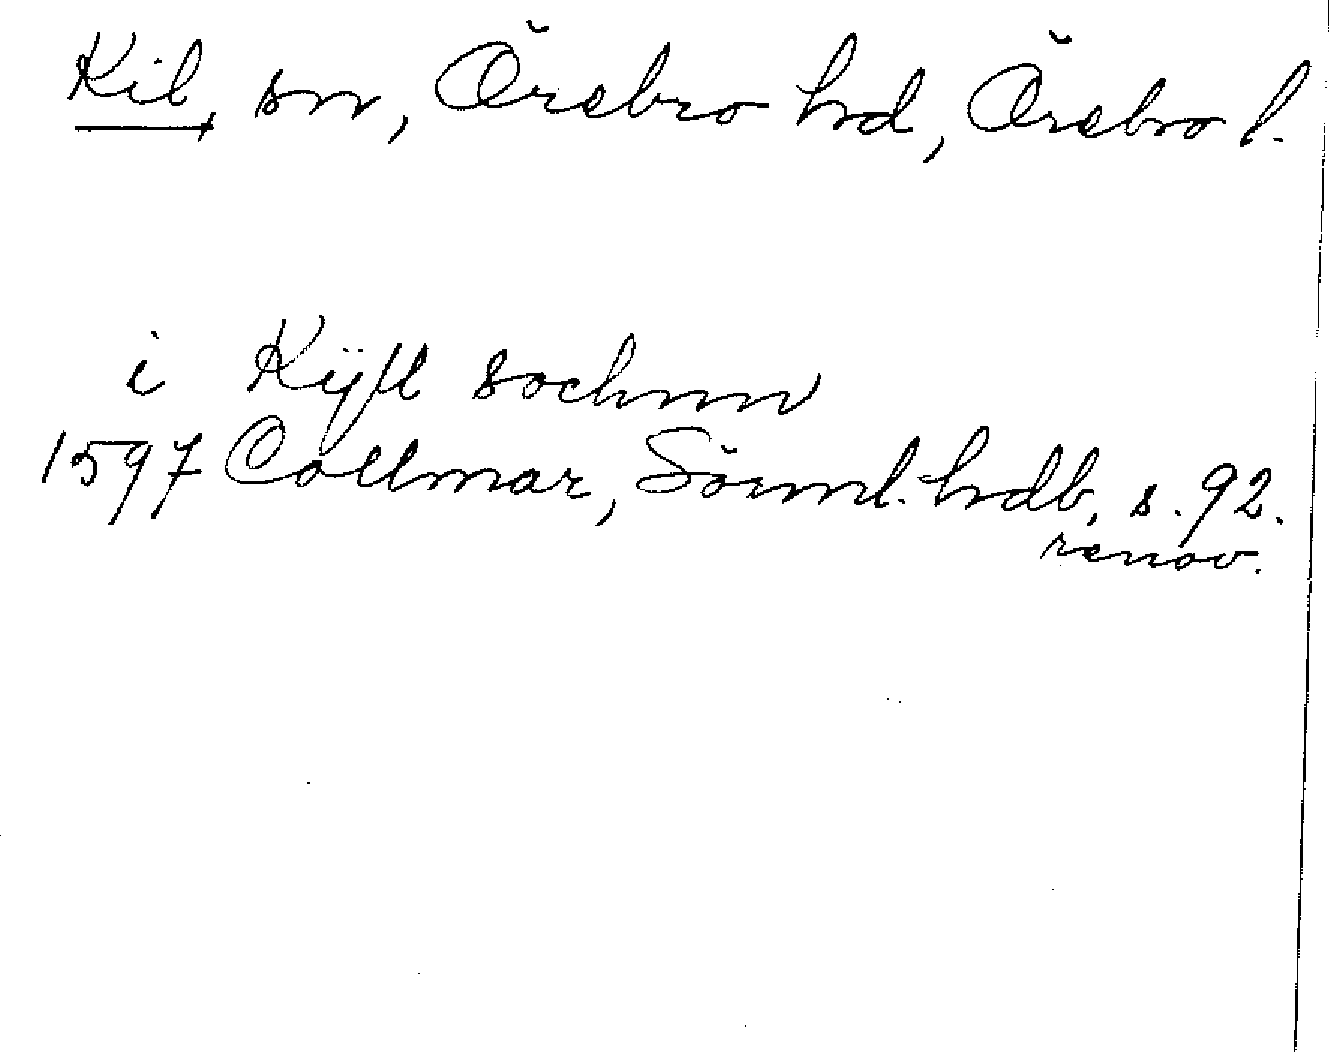 Kil, sn, Örebro hrd, Örebro l.
i Kÿll sochnn
1597 Collmar, Sörml. hrdb, s. 92.
renov.